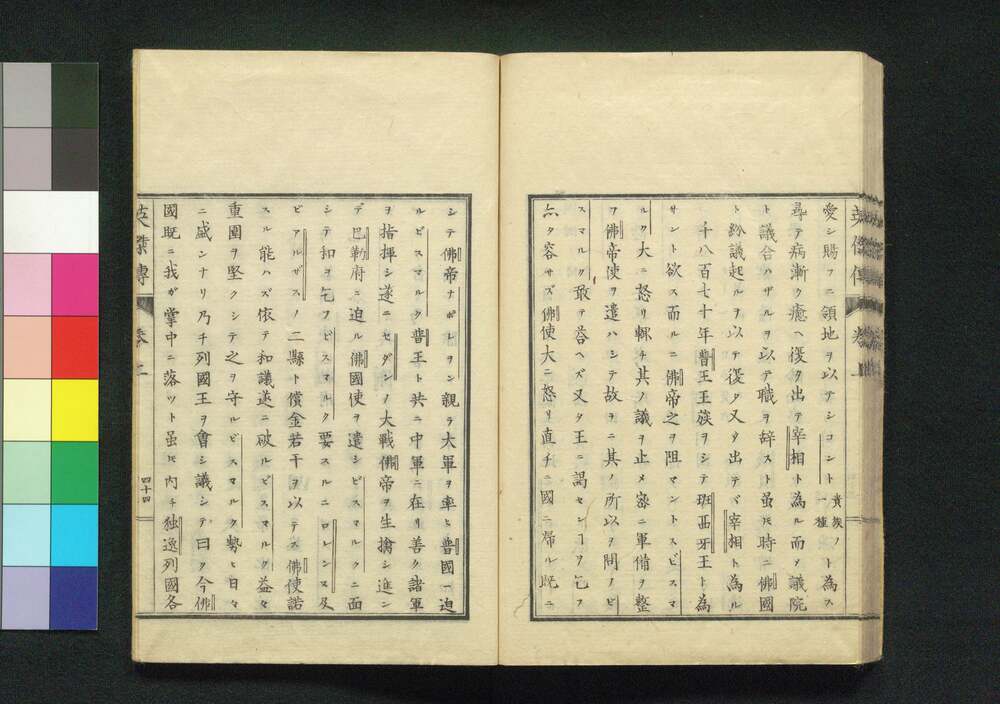 愛シ賜フニ領地ヲ以テシコント貴族ノ一種ト為ス
尋テ病漸ク癒ヘ復タ出テ宰相ト為ル而ソ議院
ト議合ハザルヲ以テ職ヲ辞スト虽𪜈時ニ佛國
ト紛議起ルヲ以テ復タ又タ出テバ宰相ト為ル
千八百七十年普王王族ヲシテ班西牙王ト為
サント欲ス而ルニ佛帝之ヲ阻マントスビスマ
ルク大ニ怒リ輙チ其ノ議ヲ止メ密ニ軍備ヲ整
フ佛帝使ヲ遣ハシテ故ヲニ其ノ所以ヲ問ノビ
スマルク敢テ荅ヘズ又タ王ニ謁センヿヲ乞フ
亦タ容サズ佛使大ニ怒リ直チニ國ニ帰ル既ニ
シテ佛帝ナポレヲン親ラ大軍ヲ率ヒ普國ニ迫
ルビスマルク普王ト共ニ中軍ニ在リ善ク諸軍
ヲ指揮シ遂ニセダンノ大戰佛帝ヲ生擒シ進ン
デ巴勒府ニ迫ル佛國使ヲ遣シビスマルクニ面
シテ和ヲ乞フビスマルク要スルニロレンス及
ビアルザスノ二縣ト償金若干ヲ以テス佛使諾
スル能ハズ依テ和議遂ニ破ルビスマルク益々
重圍ヲ堅クシテ之ヲ守ルビスマルク勢ヒ日々
ニ盛ンナリ乃チ列國王ヲ會シ議シテ曰ク今佛
國既ニ我ガ掌中ニ落ツト虽𪜈内チ独逸列國各
英傑傳
巻二
四十四
英傑傳
巻二